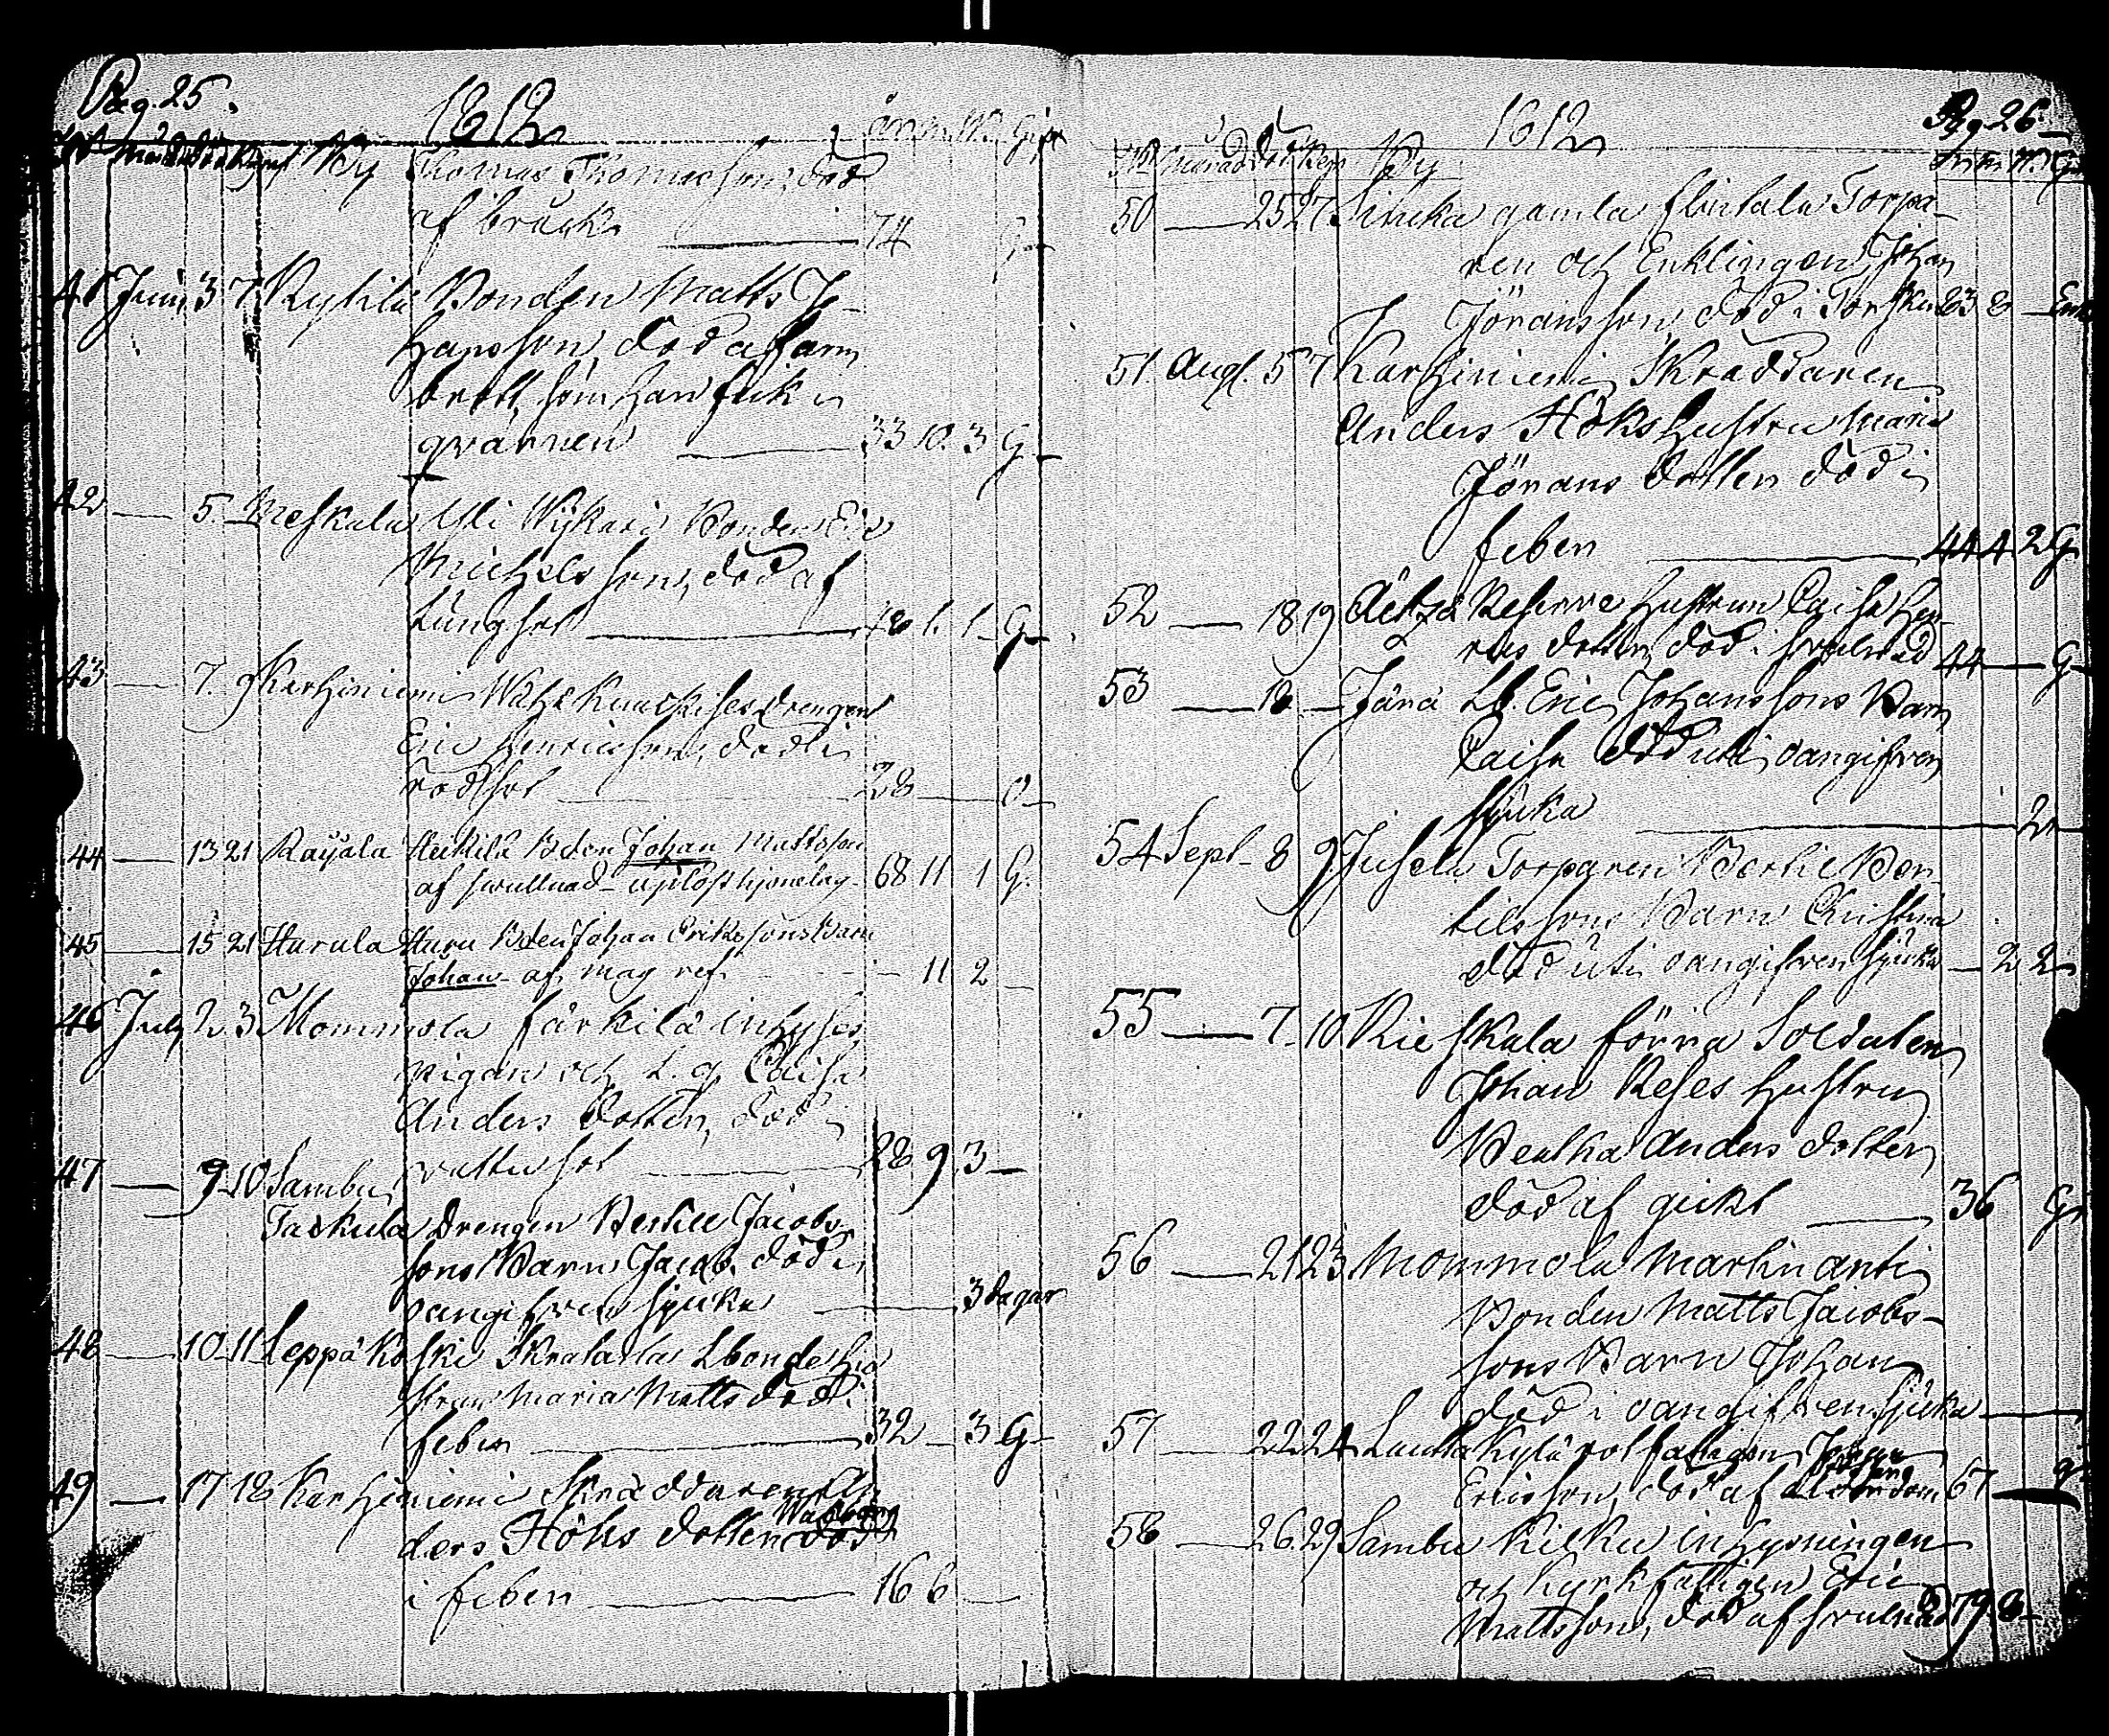 Pag. 25.
1812
By Thomas Thomasson, död
af bråck 74 G
41 Juni 3 7 Kylilä Bonden Matts Jo-
hansson, död af arm
brott, som han fick i
qvarnen 33 10. 3 G
42 5. Meskala Yli Wÿkari Bonden Eric
Michelsson, död af
lungsot 48 1. 1 G
43 7. 9 Karhiniemi drengen
Eric Henricsson, död i
rödsot 28 O
44 13 21 Raijala Heikilä Bden Johan Mattsson
af svullnad - uplöst hjonelag 68 11 1 G.
45 15 21 Hurula Huru Bden Johan Erikssons Barn
Johan - af mag ref 11 2
46 July 2. 3 Mommola Färkilä inhyses
pigan och L. q. Caisa
Anders dotter, död i
vattusot 28 9 3
47 9 10 Sambu
Taskula Drengen Bertill Jacobs
sons Barn Jacob, död i
oangifven sjuka 3 dagar
48 10 11 Leppäkoski Lbondes hu
strun Maria Matts död i
feber 32 3 G
49 17 18 Karhiniemi Skräddaren An
ders Höks dotter Walborg död
i feber 16 6
1812
Pag. 26
No Månad död Begr By
50 25 27 gamla Torpa-
ren och Enklingen Johan
Jöransson, död i Torsken 83 8 Enk
51. Aug. 5 7 Karhiniemi Skräddaren
Anders Höks hustru Maria
Jörans dotter död i
feber 44 4 2 G
52 18 19 hustrun Caisa Hen-
rics dotter, död i svulnad 44 G
53 18 Järä Lb. Eric Johanssons Barn
Caisa död uti oangifven
sjuka 2
54 Sept 8 9 Jusela Torparen Bertil Ber-
tilssons Barn Christina
död uti oangifven sjuka 2 2
55 7 10 Rieskala förra Soldaten
Johan Reses hustru
Beatha Anders dotter
död af gickt 36 G
56 21 23 Mommola Martin Anti
Bonden Matts Jacobs-
sons Barn Johan
död i oangifven sjuka
57 22 24 Lautta Kylä rotfattigen Johan
Ericsson, död af ålderdom 67
58 26 29 Sambu Kilku inhysningen
och kyrkfattigen Eric
Mattsson, död af svulnad 79 8